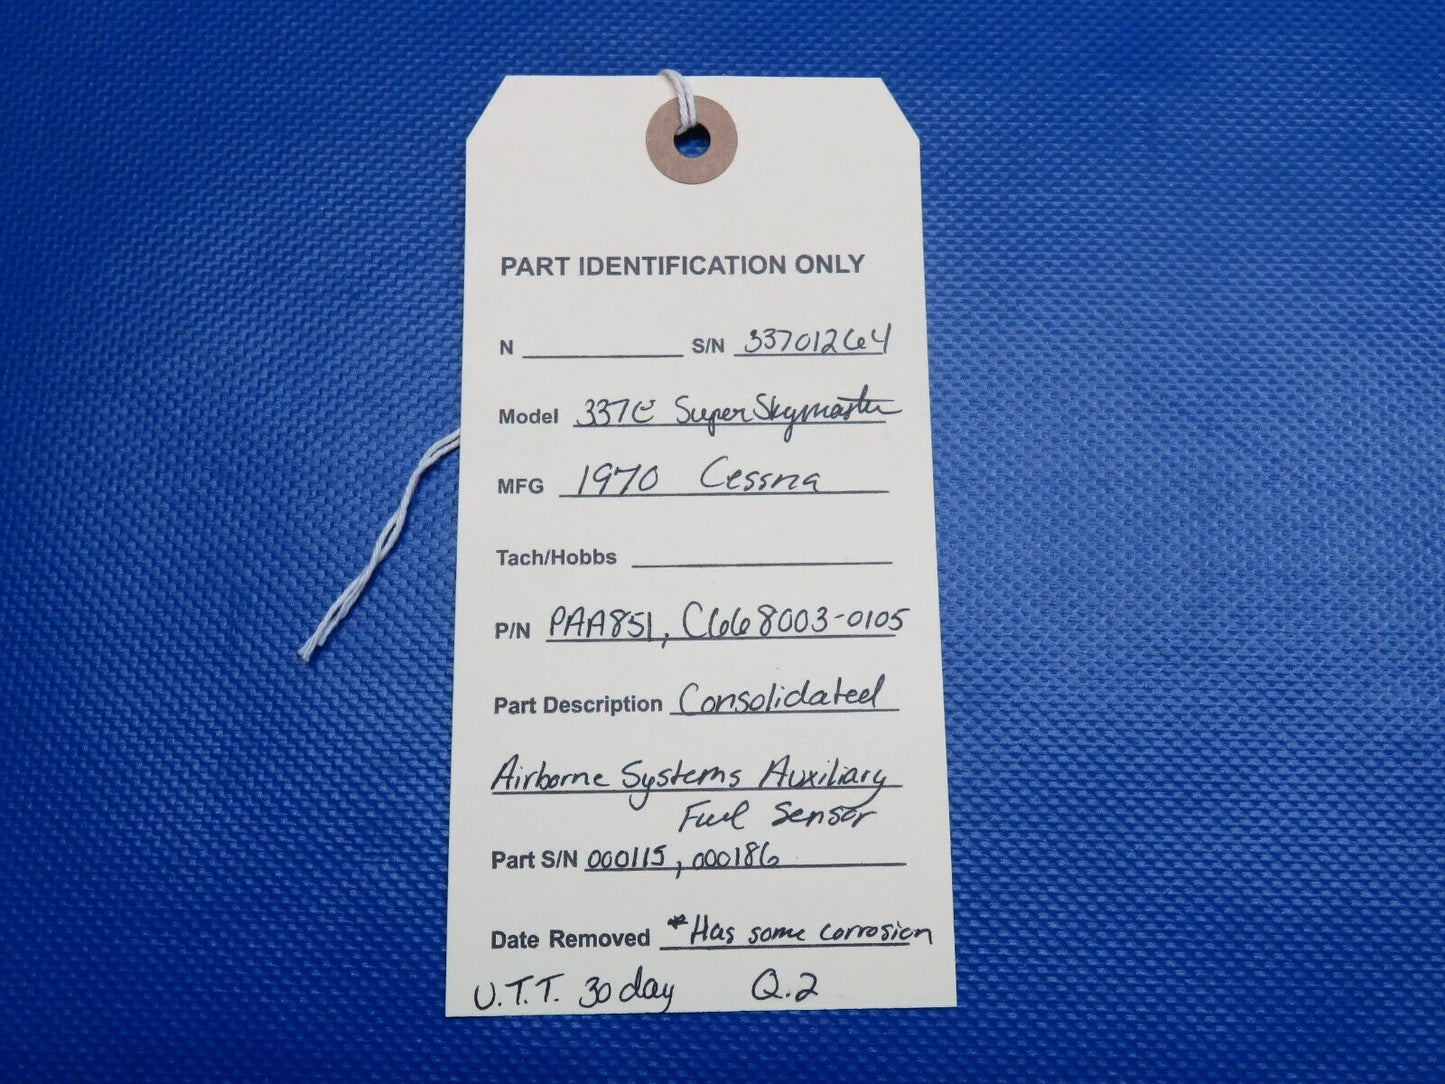 PART IDENTIFICATION ONLY
N S/N 33701264
Model 337E Super Skymaster
MFG 1970 Cessna
Tach/Hobbs
P/N PAA851, C668003-0105
Part Description Consolidated
Airborne Systems Auxiliary
Fuel Sensor
Part S/N 000115, 000186
Date Removed *Has some corrosion
U.T.T. 30 day Q.2